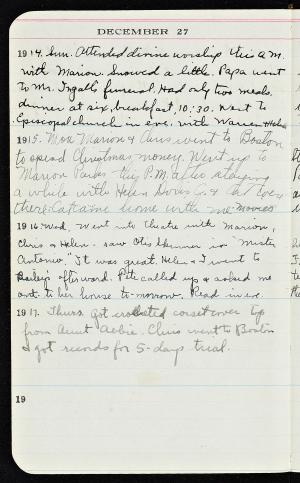 DECEMBER 27
1914. Sun. Attended divine worship this a.m.
with Marion. Snowed a little. Papa went
to Mr. Ingalls funeral. Had only two meals.
dinner at six, breakfast, 10.30. Went to
Episcopal church in eve. with Warren Helen
1915. Mon. Marion & Chris went to Boston
to spend Christmas money. Went up to
Marion this P.M. after staying
a while with Helen Doris C. &
there. Came home with me movies
1916 Wed. Went into theatre with Marion,
Chris & Helen. saw Otis Skinner in "Mister
Antonio." It was great. Helen & I went to
Bailey's afterward. Pete called up & asked me
out to her house to-morrow. Read in eve.
1917. Thurs. Got crocheted corset cover top
from Aunt Abbie. Chris went to Boston
& got records for 5-days trial.
19